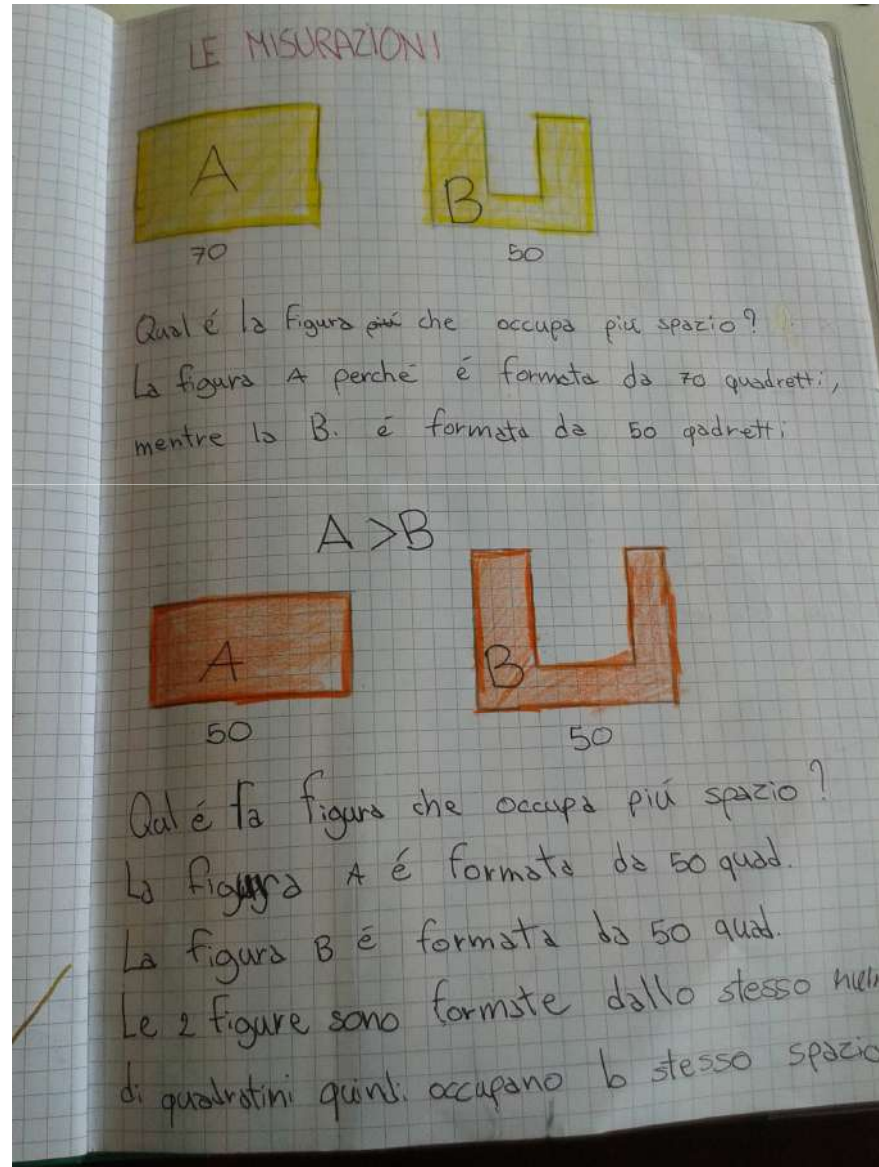 LE MISURAZIONI
A
B
70
50
Qual é la figura che occupa piú spazio?
La figura A perché é formata da 70 quadretti,
mentre la B. é formata da 50 qadretti
A > B
A
B
50
50
Qual é la figura che occupa piú spazio?
La figura A é formata da 50 quad.
La figura B é formata da 50 quad.
Le 2 figure sono formate dallo stesso
di quadratini quindi occupano lo stesso spazio